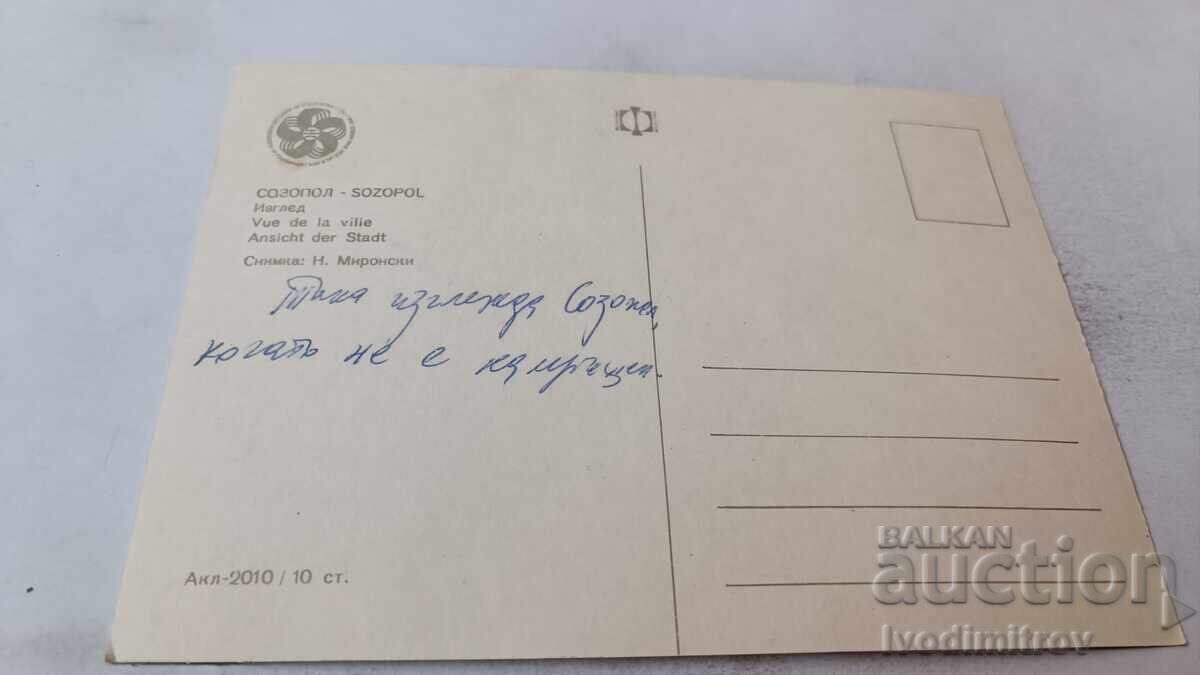 СОЗОПОЛ - SOZOPOL
Изглед
Vue de la ville
Ansicht der Stadt
Снимка: Н. Миронски
Така изглежда Созопол,
когато не е намръщен.
Акл-2010 / 10 ст.
BALKAN
auction
Ivodimitrov